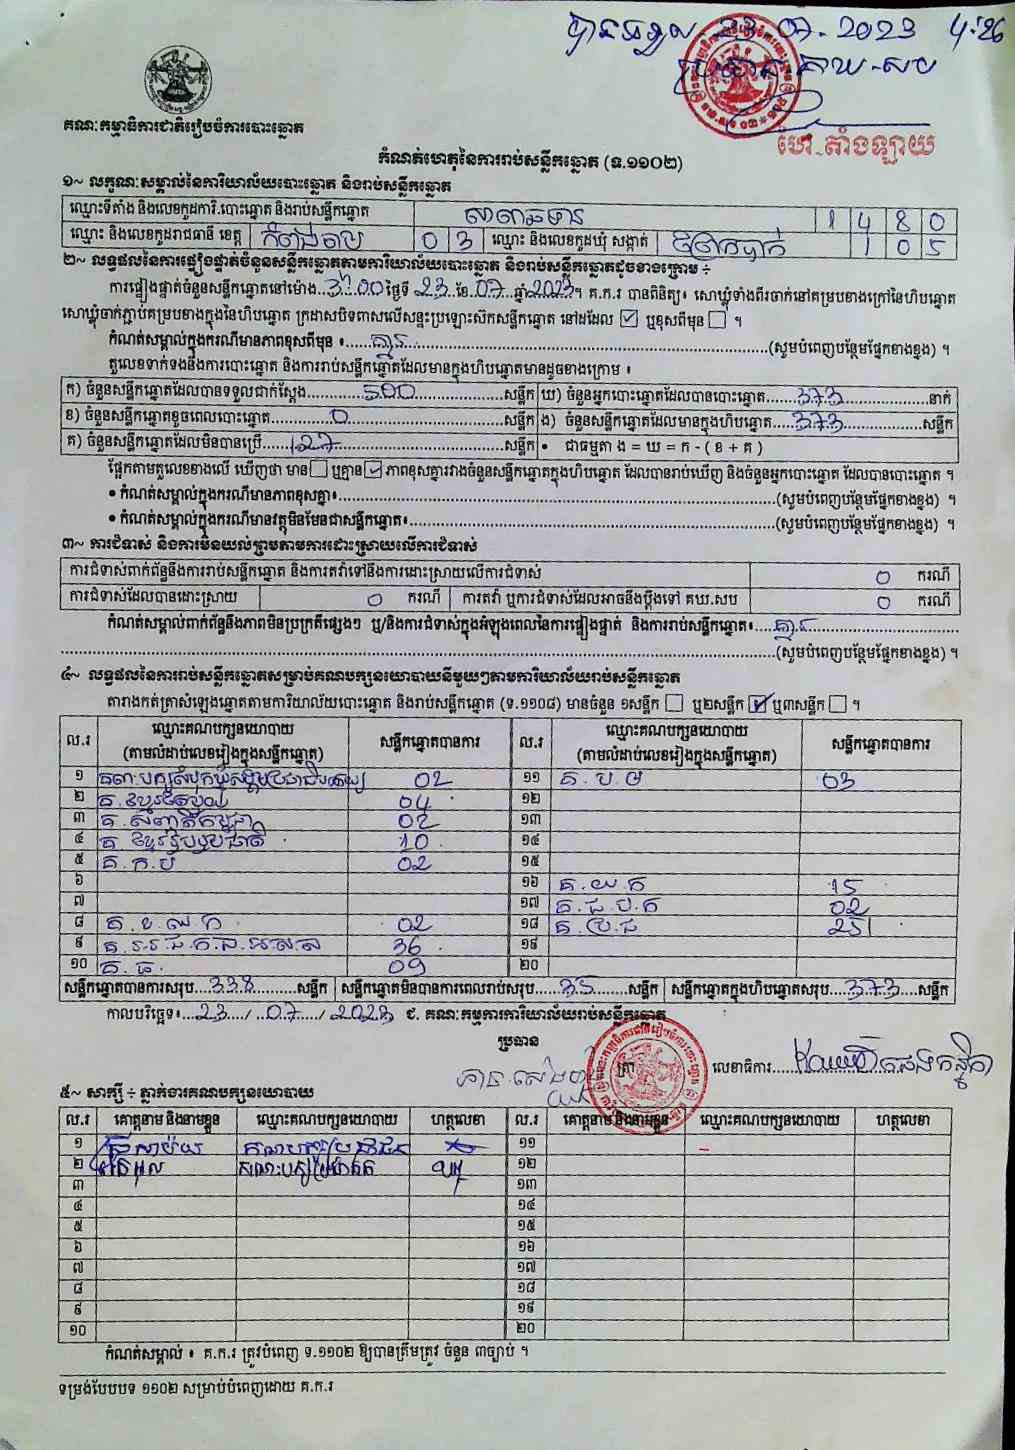 បានទទួល 23 07. 2023 4:26
ប្រធាន គឃ.សប
ហៅ.តាំងឡាយ
គណៈកម្មាធិការជាតិរៀបចំការបោះឆ្នោត
កំណត់ហេតុនៃការរាប់សន្លឹកឆ្នោត (ទ.១១០២)
១~ លក្ខណៈសម្គាល់នៃការិយាល័យបោះឆ្នោត និងរាប់សន្លឹកឆ្នោត
ឈ្មោះទីតាំង និងលេខកូដការិ.បោះឆ្នោត និងរាប់សន្លឹកឆ្នោត 1 4 8 0
ឈ្មោះ និងលេខកូដរាជធានី ខេត្ត កំពង់ចាម 0 3 ឈ្មោះ និងលេខកូដឃុំ សង្កាត់ ព្រែកបាក់ 1 0 5
២~ លទ្ធផលនៃការផ្ទៀងផ្ទាត់ចំនួនសន្លឹកឆ្នោតតាមការិយាល័យបោះឆ្នោត និងរាប់សន្លឹកឆ្នោតដូចខាងក្រោម ÷
ការផ្ទៀងផ្ទាត់ចំនួនសន្លឹកឆ្នោតនៅម៉ោង..3:00 ថ្ងៃទី 23 ខែ 07 ឆ្នាំ 2023 ។ គ.ក.រ បានពិនិត្យ៖ សោឃ្លុំទាំងពីរចាក់នៅគម្របខាងក្រៅនៃហិបឆ្នោត
សោឃ្លុំចាក់ភ្ជាប់គម្របខាងក្នុងនៃហិបឆ្នោត ក្រដាសបិទពាសលើសន្ទះប្រឡោះស៊កសន្លឹកឆ្នោត នៅដដែល ☑ ឬខុសពីមុន ☐ ។
កំណត់សម្គាល់ក្នុងករណីមានភាពខុសពីមុន ៖ គ្មាន (សូមបំពេញបន្ថែមផ្នែកខាងខ្នង) ។
តួលេខទាក់ទងនឹងការបោះឆ្នោត និងការរាប់សន្លឹកឆ្នោតដែលមានក្នុងហិបឆ្នោតមានដូចខាងក្រោម ៖
ក) ចំនួនសន្លឹកឆ្នោតដែលបានទទួលជាក់ស្តែង 500 សន្លឹក ឃ) ចំនួនអ្នកបោះឆ្នោតដែលបានបោះឆ្នោត 373 នាក់
ខ) ចំនួនសន្លឹកឆ្នោតខូចពេលបោះឆ្នោត 0 សន្លឹក ង) ចំនួនសន្លឹកឆ្នោតដែលមានក្នុងហិបឆ្នោត 373 សន្លឹក
គ) ចំនួនសន្លឹកឆ្នោតដែលមិនបានប្រើ 127 សន្លឹក • ជាធម្មតា ង = ឃ = ក - ( ខ + គ )
ផ្អែកតាមតួលេខខាងលើ ឃើញថា មាន ☐ ឬគ្មាន ☑ ភាពខុសគ្នារវាងចំនួនសន្លឹកឆ្នោតក្នុងហិបឆ្នោត ដែលបានរាប់ឃើញ និងចំនួនអ្នកបោះឆ្នោត ដែលបានបោះឆ្នោត ។
• កំណត់សម្គាល់ក្នុងករណីមានភាពខុសគ្នា៖ (សូមបំពេញបន្ថែមផ្នែកខាងខ្នង) ។
• កំណត់សម្គាល់ក្នុងករណីមានវត្ថុមិនមែនជាសន្លឹកឆ្នោត៖ (សូមបំពេញបន្ថែមផ្នែកខាងខ្នង) ។
៣~ ការជំទាស់ និងការមិនយល់ព្រមតាមការដោះស្រាយលើការជំទាស់
ការជំទាស់ពាក់ព័ន្ធនឹងការរាប់សន្លឹកឆ្នោត និងការតវ៉ាទៅនឹងការដោះស្រាយលើការជំទាស់ 0 ករណី
ការជំទាស់ដែលបានដោះស្រាយ 0 ករណី ការតវ៉ា ឬការជំទាស់ដែលអាចនឹងប្តឹងទៅ គឃ.សប 0 ករណី
កំណត់សម្គាល់ពាក់ព័ន្ធនឹងភាពមិនប្រក្រតីផ្សេងៗ ឬ/និងការជំទាស់ក្នុងអំឡុងពេលនៃការផ្ទៀងផ្ទាត់ និងការរាប់សន្លឹកឆ្នោត៖ គ្មាន
(សូមបំពេញបន្ថែមផ្នែកខាងខ្នង) ។
៤~ លទ្ធផលនៃការរាប់សន្លឹកឆ្នោតសម្រាប់គណបក្សនយោបាយនីមួយៗតាមការិយាល័យរាប់សន្លឹកឆ្នោត
តារាងកត់ត្រាសំឡេងឆ្នោតតាមការិយាល័យបោះឆ្នោត និងរាប់សន្លឹកឆ្នោត (ទ.១១០៨) មានចំនួន ១សន្លឹក ☐ ឬ២សន្លឹក ☑ ឬ៣សន្លឹក ☐ ។
ល.រ ឈ្មោះគណបក្សនយោបាយ (តាមលំដាប់លេខរៀងក្នុងសន្លឹកឆ្នោត) សន្លឹកឆ្នោតបានការ ល.រ ឈ្មោះគណបក្សនយោបាយ (តាមលំដាប់លេខរៀងក្នុងសន្លឹកឆ្នោត) សន្លឹកឆ្នោតបានការ
១ គណៈបក្សសំបុកឃ្មុំសង្គមប្រជាធិបតេយ្យ 02 ១១ គ.ប.ម 03
២ គ.ខ្មែរ 04 ១២
៣ គ. 02 ១៣
៤ គ ខ្មែររួបរួមជាតិ 10 ១៤
៥ គ.ក.ប 02 ១៥
៦ ១៦ គ.យ.ក 15
៧ ១៧ គ.ជ.ប.ក 02
៨ គ.ខ.ឈ.ក 02 ១៨ គ.ប្រ.ជ 251
៩ 36 ១៩
១០ គ.ធ. 09 ២០
សន្លឹកឆ្នោតបានការសរុប 338 សន្លឹក សន្លឹកឆ្នោតមិនបានការពេលរាប់សរុប 35 សន្លឹក សន្លឹកឆ្នោតក្នុងហិបឆ្នោតសរុប 373 សន្លឹក
កាលបរិច្ឆេទ៖ 23 / 07 / 2023 ជ. គណៈកម្មការការិយាល័យរាប់សន្លឹកឆ្នោត
ប្រធាន
ត្រា លេខាធិការ
៥~ សាក្សី ÷ ភ្នាក់ងារគណបក្សនយោបាយ
ល.រ គោត្តនាម និងនាមខ្លួន ឈ្មោះគណបក្សនយោបាយ ហត្ថលេខា ល.រ គោត្តនាម និងនាមខ្លួន ឈ្មោះគណបក្សនយោបាយ ហត្ថលេខា
១ គណបក្សប្រជាជន ១១
២ ១២
៣ ១៣
៤ ១៤
៥ ១៥
៦ ១៦
៧ ១៧
៨ ១៨
៩ ១៩
១០ ២០
កំណត់សម្គាល់ ៖ គ.ក.រ ត្រូវបំពេញ ទ.១១០២ ឱ្យបានត្រឹមត្រូវ ចំនួន ៣ច្បាប់ ។
ទម្រង់បែបបទ ១១០២ សម្រាប់បំពេញដោយ គ.ក.រ